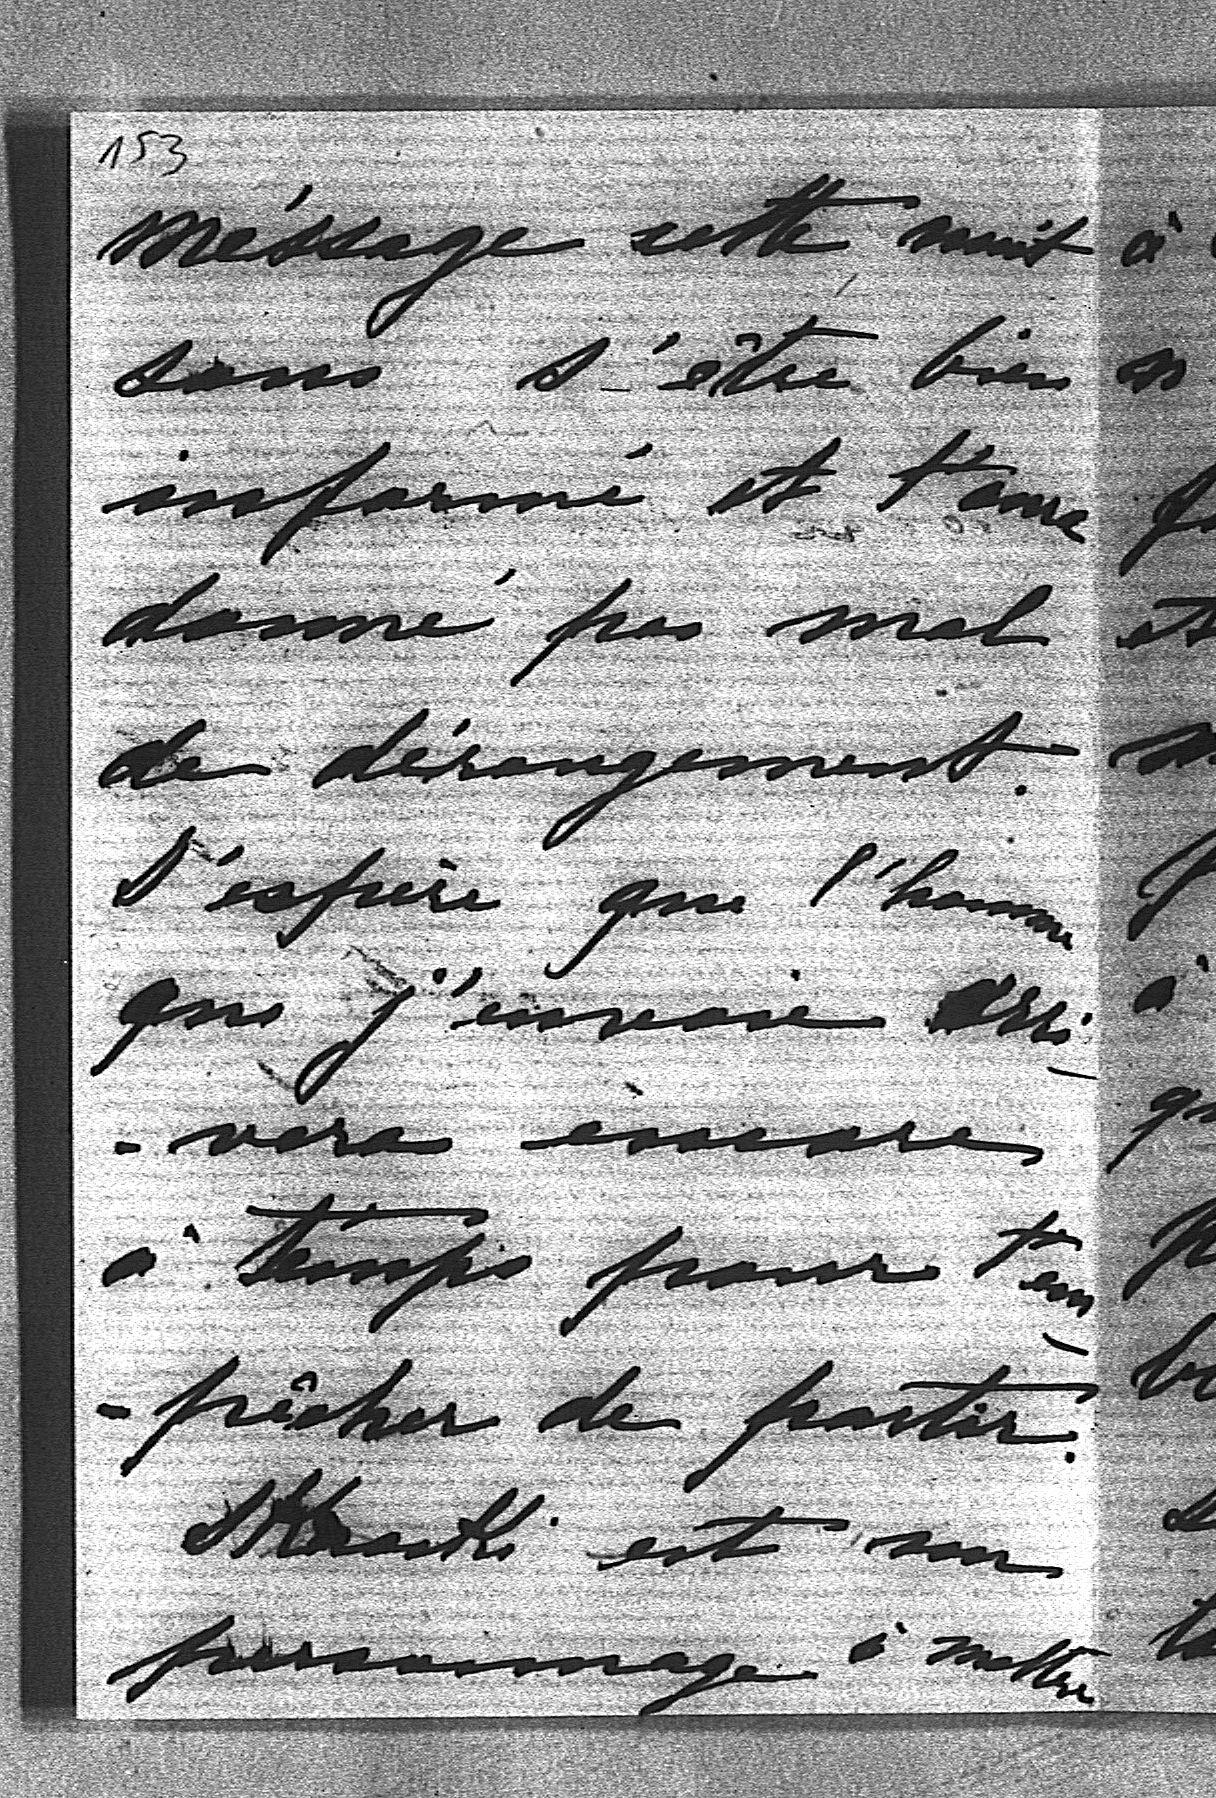 153
méssage cette nuit
sans s'être bien
informé et t'aura
donné pas mal
de dérangement.
J'espère que l'homme
que j'envoie arri-
-vera encore
à temps pour t'em-
-pêcher de partir.
est un
personnage à mettre